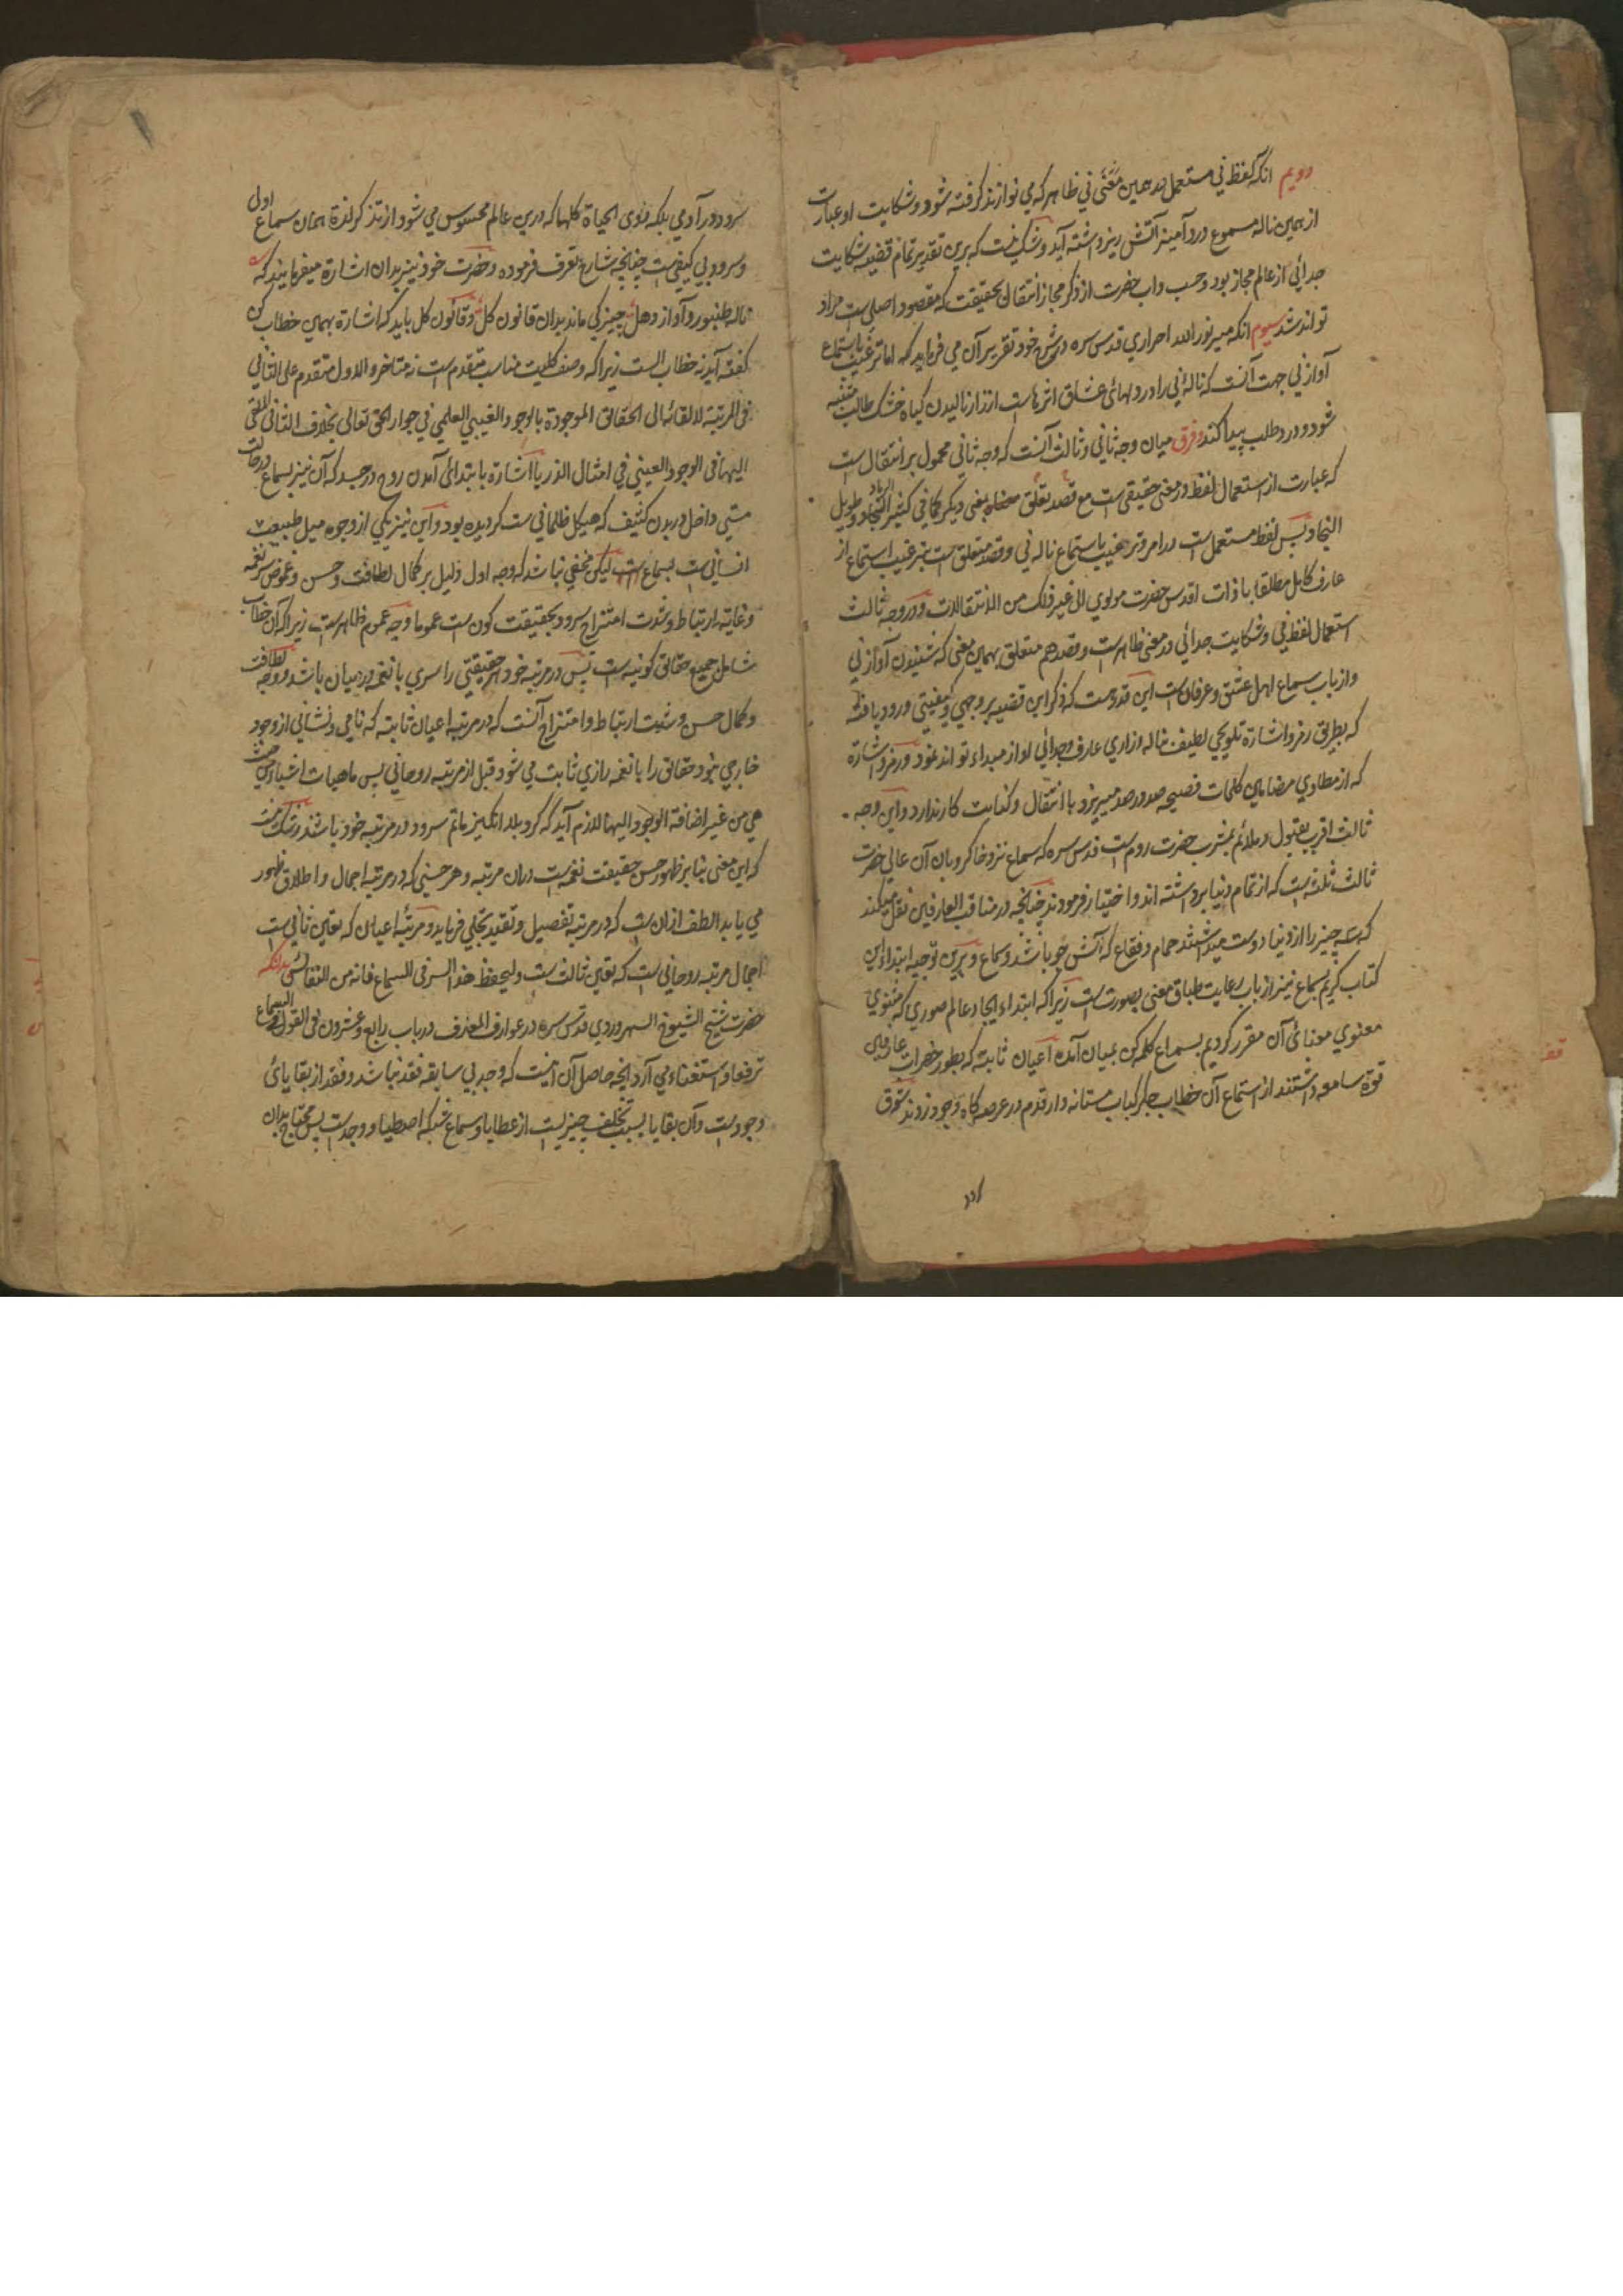 دویم انکه لفظ نی مستعمل در همین معنی نی ظاهر که می نوازند گرفته شود و شکایت او عبارت
از همین ناله مسموع درد آمیز آتش ریز داشته آید و شک نیست که برین تقدیر تمام قضیه شکایت
جدائی از عالم مجاز بود و حسب داب حضرت از ذکر مجاز انتقال بحقیقت که مقصود اصلی ست مراد
تواند شد سیوم انکه میر نورالله احراری قدس سره در شرح خود تقریر آن می فرماید که اما ترغیب باستماع
آواز نی جهت آنست که ناله نی را در دلهای عشاق اثرهاست از نالیدن کیاه خشک طالب متنبه
شود و درد طلب پیدا کند وفرق میان وجه ثانی و ثالث آنست که وجه ثانی محمول بر انتقال ست
که عبارت از استعمال لفظ در معنی حقیقی ست مع قصد تعلق بمعنی دیگر کما فی کثیر الرماد و طویل
النجاد و پس لفظ مستعمل ست در امر و ترغیب باستماع ناله نی و قصد متعلق ست بترغیب استماع از
عارف کامل مطلقا با ذات اقدس حضرت مولوی الی غیر ذلک من الانتقالات و در وجه ثالث
استعمال لفظ نی و شکایت جدائی در معنی ظاهرست و قصد هم متعلق بهمین معنی که شنیدن آواز نی
و از باب سماع اهل عشق و عرفان ست این قدر هست که ذکر این قضیه بر وجهی و کیفیتی ورود یافته
که بطریق رمز و اشارة تلویحی لطیف بناله و زاری عارف و جدائی او از مبداء تواند نمود و رمز و اشارة
که از مطاوی مضامین کلمات فصیحه صدور میپذیرد با انتقال و کنایت کار ندارد و این وجه
ثالث اقرب بقبول و ملائم بمشرب حضرت روم ست قدس سره که سماع نزد خاکروبان آن عالی حضرت
ثالث ثلثه ست که از تمام دنیا برداشته اند و اختیار فرمودند چنانچه در مناقب العارفین نقل میکند
که سه چیز را از دنیا دوست میداشتند حمام و فقاع که آتش جو باشد و سماع و برین توجیه ابتداء این
کتاب کریم بسماع نیز از باب رعایت طباق معنی بصورت ست زیرا که ابتداء ایجاد عالم صوری که مثنوی
معنوی آن مقرر کردیم بسماع کلمه کن بمیان آمده اعیان ثابته که بطور حضرات عارفین
قوة سامعه داشتند از استماع آن خطاب جکر کباب مستانه وار قدم در عرصه کاه وجود زدند شوق
سرود در آدمی بلکه ذوی الحیاة کلها که درین عالم محسوس می شود از تذکر لذة همان سماع اولی
و سرود بی کیفی ست چنانچه شارع تعرف فرموده و حضرت خود نیز بدان اشارة میفرمایند که
ناله طنبور و آواز دهل چیزکی ماند بدان قانون کل و قانون کل باید که اشارة بهمین خطاب کن
گفته آید نه خطاب الست زیرا که وصف کلیت مناسب متقدم ست نه متاخر و الاول متقدم علی الثانی
فی المرتبة لالقائه الی الحقائق الموجودة بالوجود الغیبی العلمی فی جوار الحق تعالی بخلاف الثانی الملقی
الیها فی الوجود العینی فی امثال الذر یا اشارة بابتدای آمدن روح در جسد که آن نیز بسماع
داخل در بدن کثیف که هیکل ظلمانی ست گردیده بود و این نیز یکی از وجوه میل طبیعت
انسانی ست بسماع لیکن مخفی نباشد که وجه اول دلیل بر کمال لطافت و حسن و غموض سر نغمه
و غایة ارتباط و شدت امتزاج سرود بحقیقت کون ست عموما وجه عموم ظاهرست زیرا که آن خطاب
شامل جمیع حقائق کونیه ست پس در مرتبه خود هر حقیقتی را سری با نغمه در میان باشد و وجه لطافت
و کمال حسن و شدت ارتباط و امتزاج آنست که در مرتبه اعیان ثابته که نامی و نشانی از وجود
خارجی نبود حقائق را با نغمه رازی ثابت می شود قبل از مرتبه روحانی پس ماهیات اشیاء من حیث
هی من غیر اضافة الوجود الیها لازم آید که گرو بلا انگیز ماتم سرود در مرتبه خود باشند و شک نیست
که این معنی بنابر ظهور حسن حقیقت نغمه ست دران مرتبه و هر حسنی که در مرتبه اجمال و اطلاق ظهور
می یابد الطف ازان ست که در مرتبه تفصیل و تقید تجلی فرماید و مرتبه اعیان که تعین ثانی ست
اجمال مرتبه روحانی ست که تعین ثالث ست ولیحفظ هذا السر فی السماع فانه من النفائس بدانکه
حضرت شیخ الشیوخ السهروردی قدس سره در عوارف المعارف در باب رابع و عشرون فی القول فی السماع
ترفعا و استغناء می آرد انچه حاصل آن اینست که وجد بی سابقه فقد نباشد و فقد از بقایای
وجودست و آن بقایا بسبب تخلف چیزیست از عطایا و سماع شبکه اصطیاد وجدست پس محتاج بدان